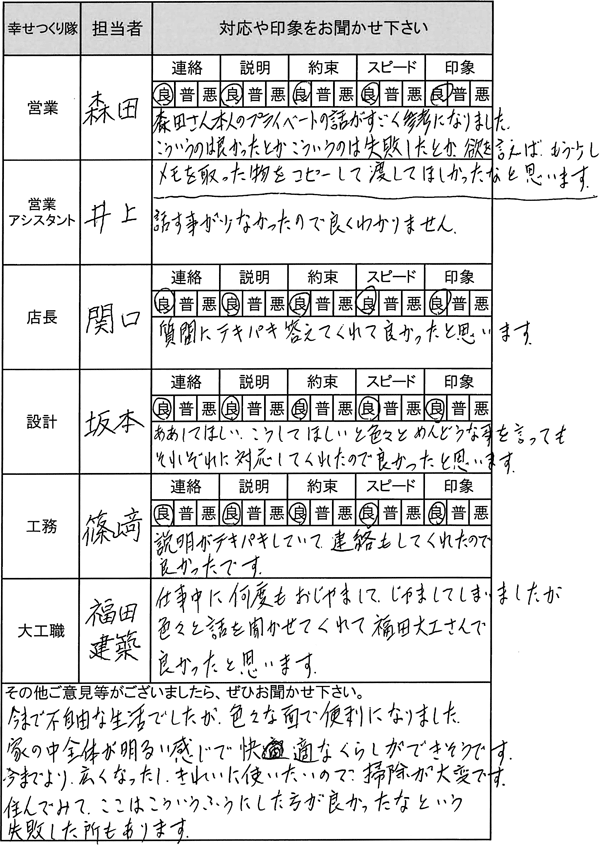 幸せつくり隊 担当者 対応や印象をお聞かせ下さい
営業 森田
連絡 説明 約束 スピード 印象
良 普 悪 良 普 悪 良 普 悪 良 普 悪 良 普 悪
森田さん本人のプライベートの話がすごく参考になりました。
こういうのは良かったとかこういうのは失敗したとか、欲を言えば、もう少し
メモを取った物をコピーして渡してほしかったなと思います。
営業
アシスタント 井上
話す事が少なかったので良くわかりません。
店長 関口
連絡 説明 約束 スピード 印象
良 普 悪 良 普 悪 良 普 悪 良 普 悪 良 普 悪
質問にテキパキ答えてくれて良かったと思います。
設計 坂本
連絡 説明 約束 スピード 印象
良 普 悪 良 普 悪 良 普 悪 良 普 悪 良 普 悪
ああしてほしい、こうしてほしいと色々とめんどうな事を言っても
それぞれに対応してくれたので良かったと思います。
工務 篠﨑
連絡 説明 約束 スピード 印象
良 普 悪 良 普 悪 良 普 悪 良 普 悪 良 普 悪
説明がテキパキしていて、連絡もしてくれたので
良かったです。
大工職 福田
建築
仕事中に何度もおじゃまして、じゃましてしまいましたが
色々と話を聞かせてくれて福田大工さんで
良かったと思います。
その他ご意見等がございましたら、ぜひお聞かせ下さい。
今まで不自由な生活でしたが、色々な面で便利になりました。
家の中全体が明るい感じで快適なくらしができそうです。
今までより、広くなったし、きれいに使いたいので、掃除が大変です。
住んでみて、ここはこういうふうにした方が良かったなという
失敗した所もあります。